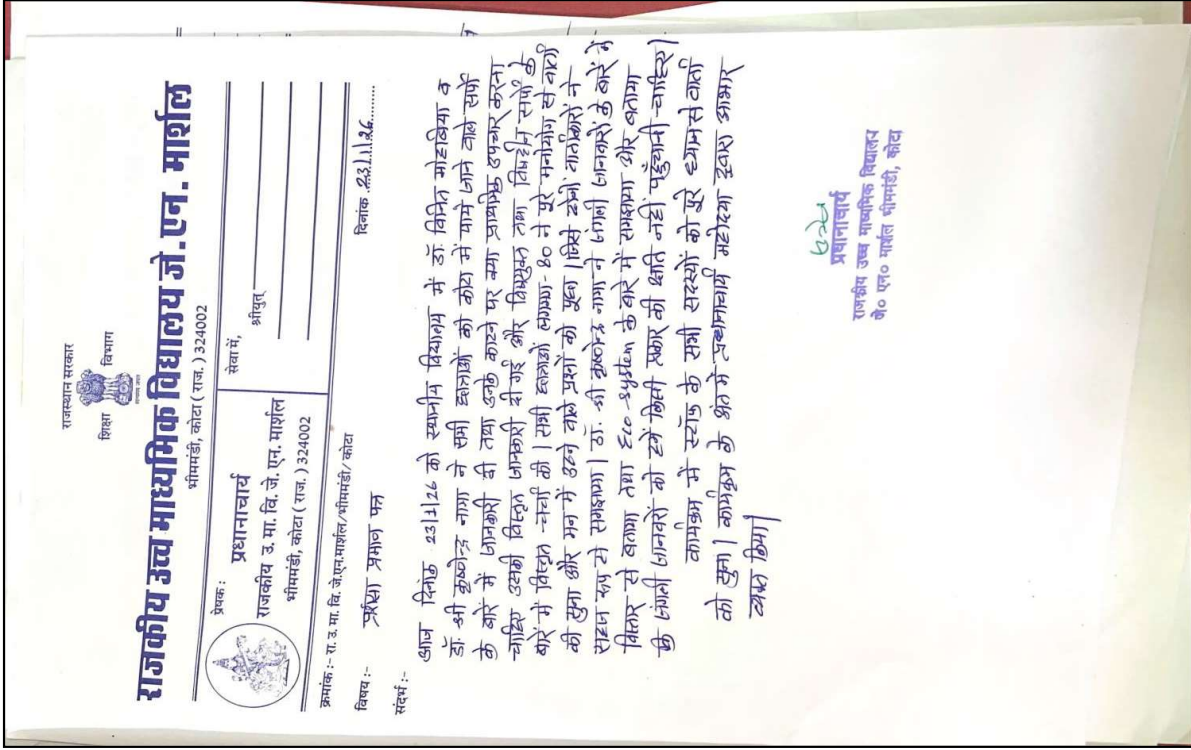 राजस्थान सरकार
शिक्षा विभाग
राजकीय उच्च माध्यमिक विद्यालय जे.एन. मार्शल
भीममंडी, कोटा ( राज. ) 324002
प्रेषक :
प्रधानाचार्य
राजकीय उ. मा. वि. जे. एन. मार्शल
भीममंडी, कोटा ( राज. ) 324002
सेवा में,
श्रीयुत्
क्रमांक :- रा. उ. मा. वि. जे.एन.मार्शल/भीममंडी/ कोटा
दिनांक 23/1/26
विषय :- प्रशंसा प्रमाण पत्र
संदर्भ :-
आज दिनांक 23/1/26 को स्थानीय विद्यालय में डॉ. विनित महोबिया व
डॉ. श्री कृष्णेन्द्र नामा ने सभी छात्राओं को कोटा में पाये जाने वाले सर्पों
के बारे में जानकारी दी तथा उनके काटने पर क्या प्राथमिक उपचार करना
चाहिए उसकी विस्तृत जानकारी दी गई और विषयुक्त तथा विषहीन सर्पों के
बारे में विस्तृत चर्चा की | सभी छात्राओं लगभग-80 ने पूरे मनोयोग से वार्ता
को सुना और मन में उठने वाले प्रश्नों को पूछा | जिसे दोनों वार्ताकारों ने
सहज रूप से समझाया | डॉ. श्री कृष्णेन्द्र नामा ने जंगली जानवरों के बारे में
विस्तार से बताया तथा Eco-System के बारे में समझाया और बताया
कि जंगली जानवरों को हमें किसी प्रकार की क्षति नहीं पहुँचानी चाहिए |
कार्यक्रम में स्टॉफ के सभी सदस्यों को पूरे ध्यान से वार्ता
को सुना | कार्यक्रम के अंत में प्रधानाचार्य महोदया द्वारा आभार
व्यक्त किया |
प्रधानाचार्य
राजकीय उच्च माध्यमिक विद्यालय
जे० एन० मार्शल भीममंडी, कोटा